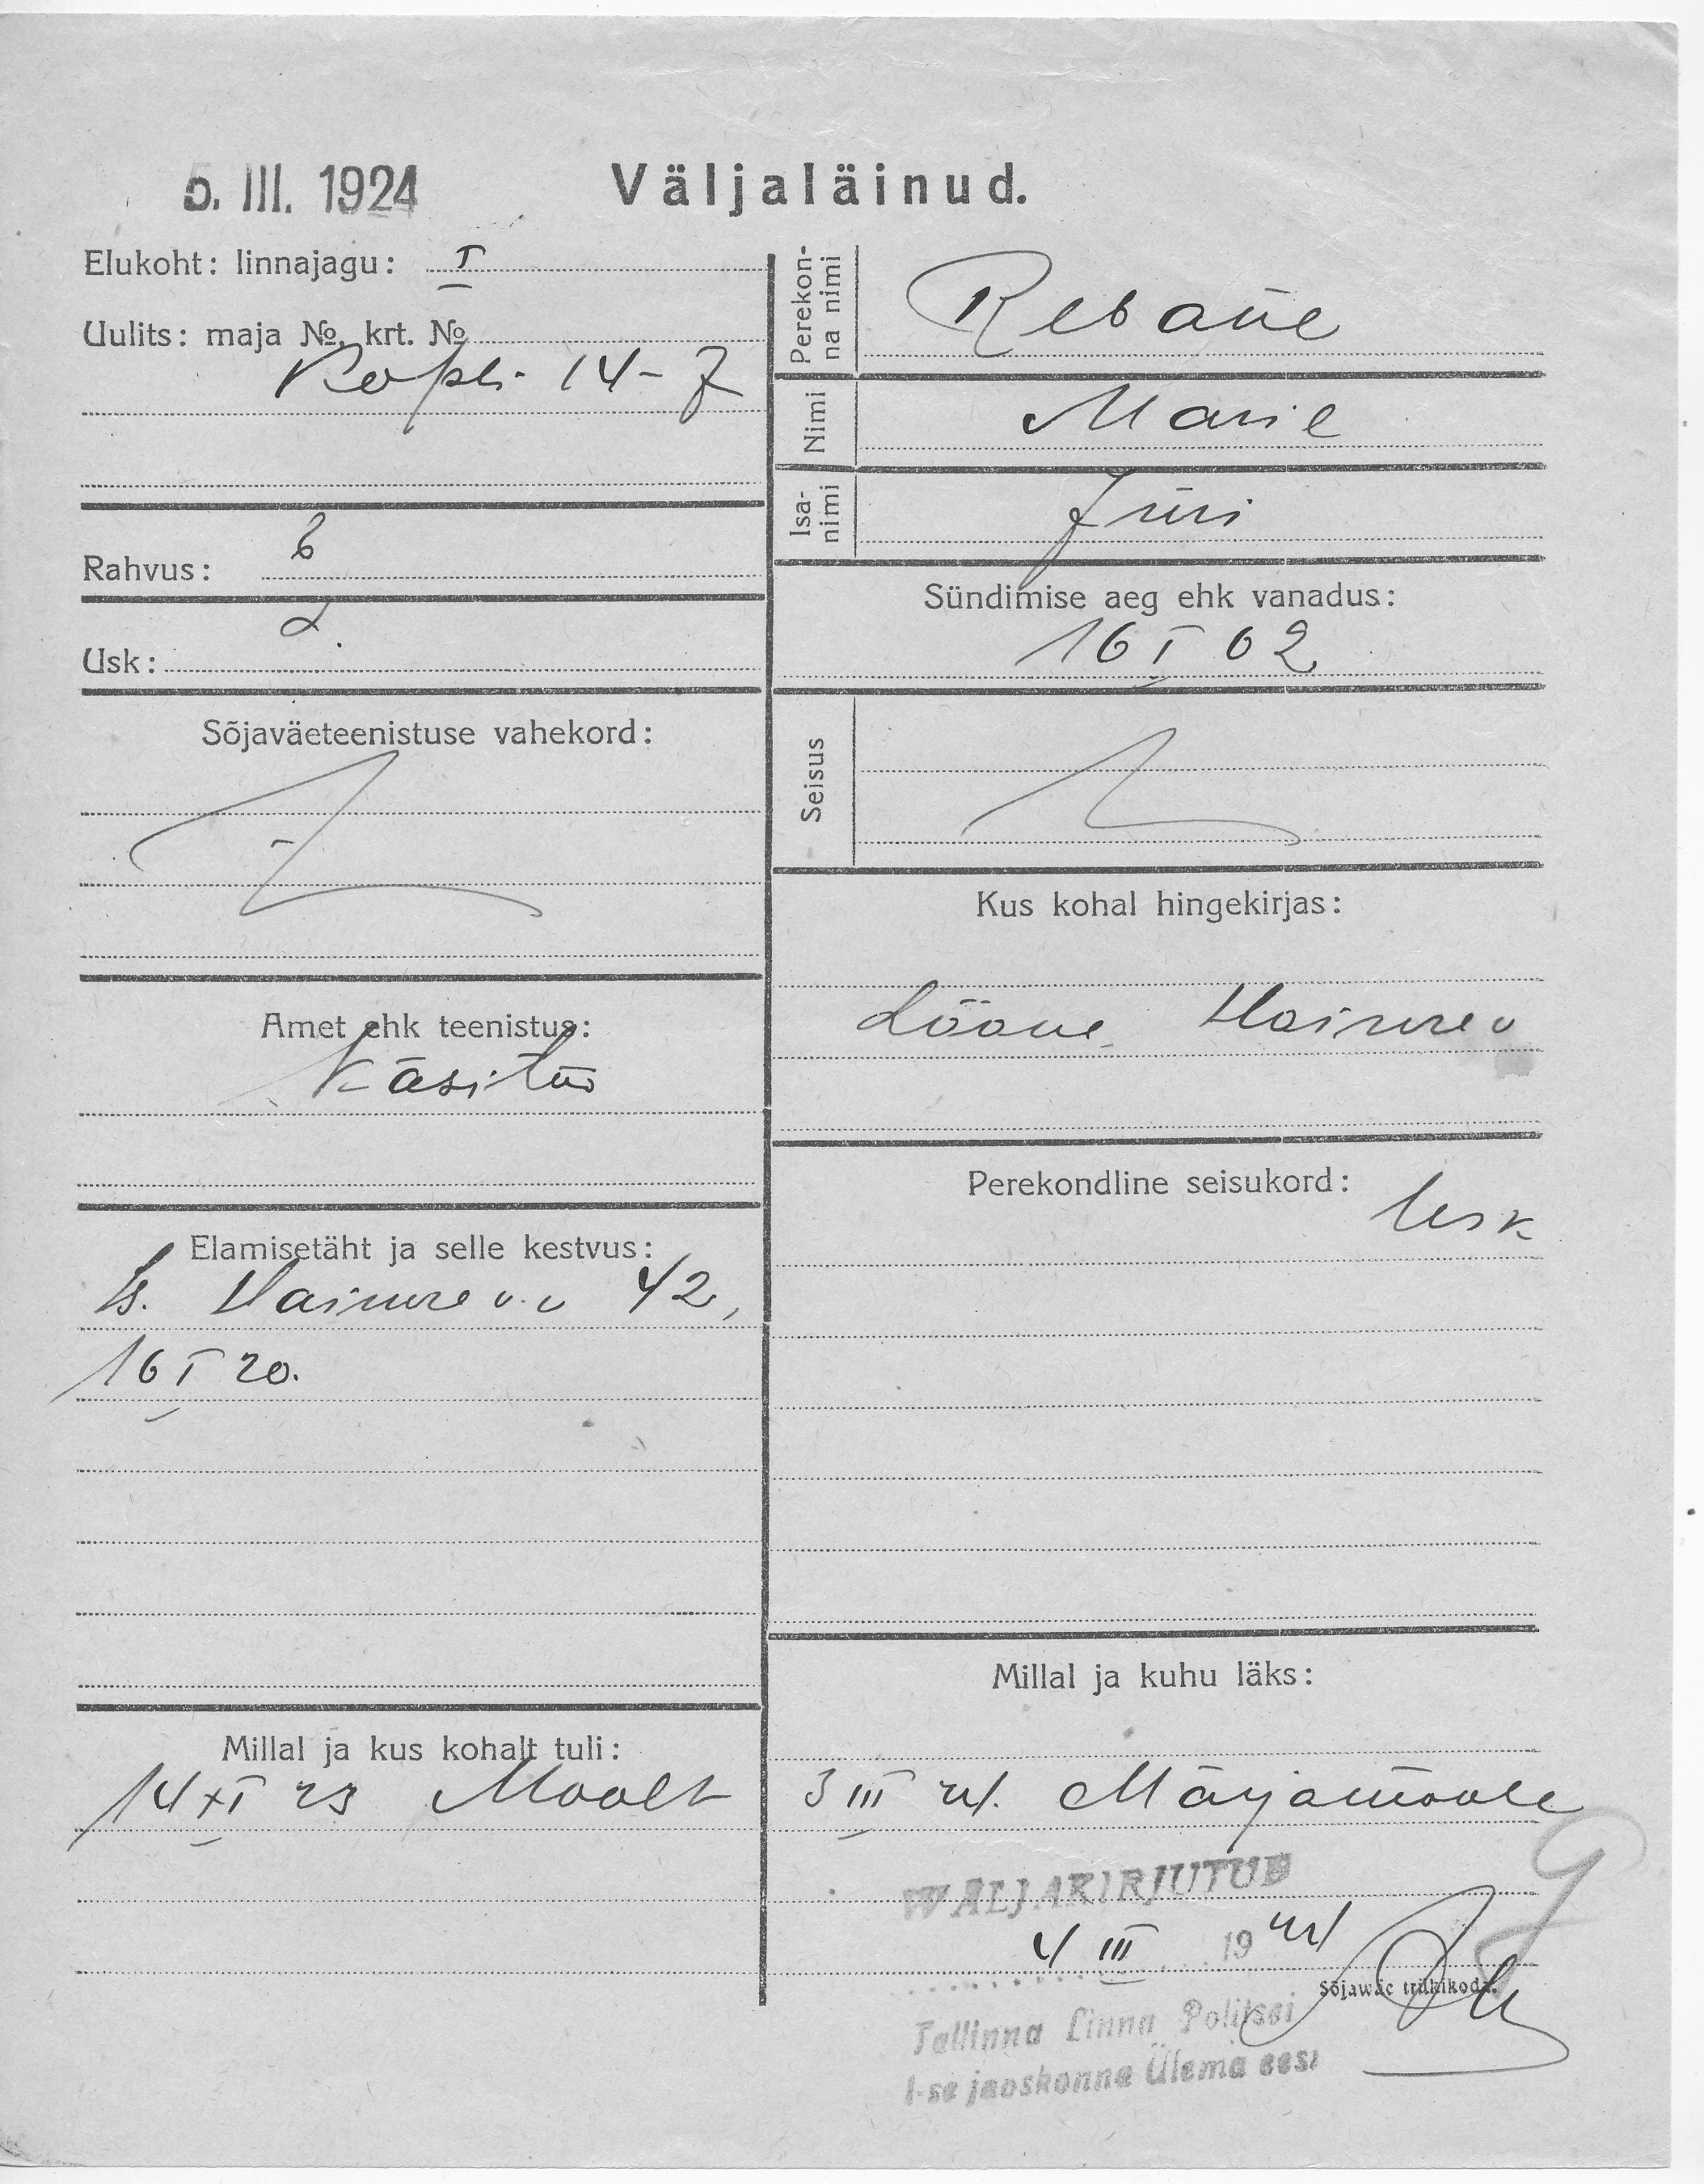 5. III. 1924
Väljaläinud.
Elukoht: linnajagu: I
Uulits: maja №, krt. №
Kopli 14-7
Rahvus: E
Usk: L
Sõjaväeteenistuse vahekord:
Amet ehk teenistus:
Käsitöö
Elamisetäht ja selle kestvus:
Is. Vaimre v.v 42,
16 I 20.
Millal ja kus kohalt tuli:
14 XI 23 Maalt
Perekonna nimi
Rebane
Nimi
Marie
Isanimi
Jüri
Sündimise aeg ehk vanadus:
16 I 02
Seisus
Kus kohal hingekirjas:
Lääne Vaimre v
Perekondline seisukord:
Lesk
Millal ja kuhu läks:
3 III 24. Märjamaale
WÄLJAKIRJUTUD
4 III 1924
Sõjawäe trükikoda.
Tallinna Linna Politsei
I-se jaoskonna Ülema eest